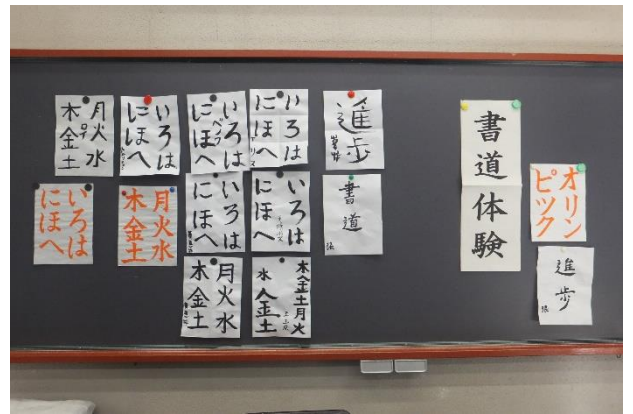 月火水
木金土
いろは
にほへ
いろは
にほへ
いろは
にほへ
進歩
書道体験
オリン
ピック
いろは
にほへ
月火水
木金土
いろは
にほへ
いろは
にほへ
書道
進歩
月火水
木金土
木金土月火
水金土